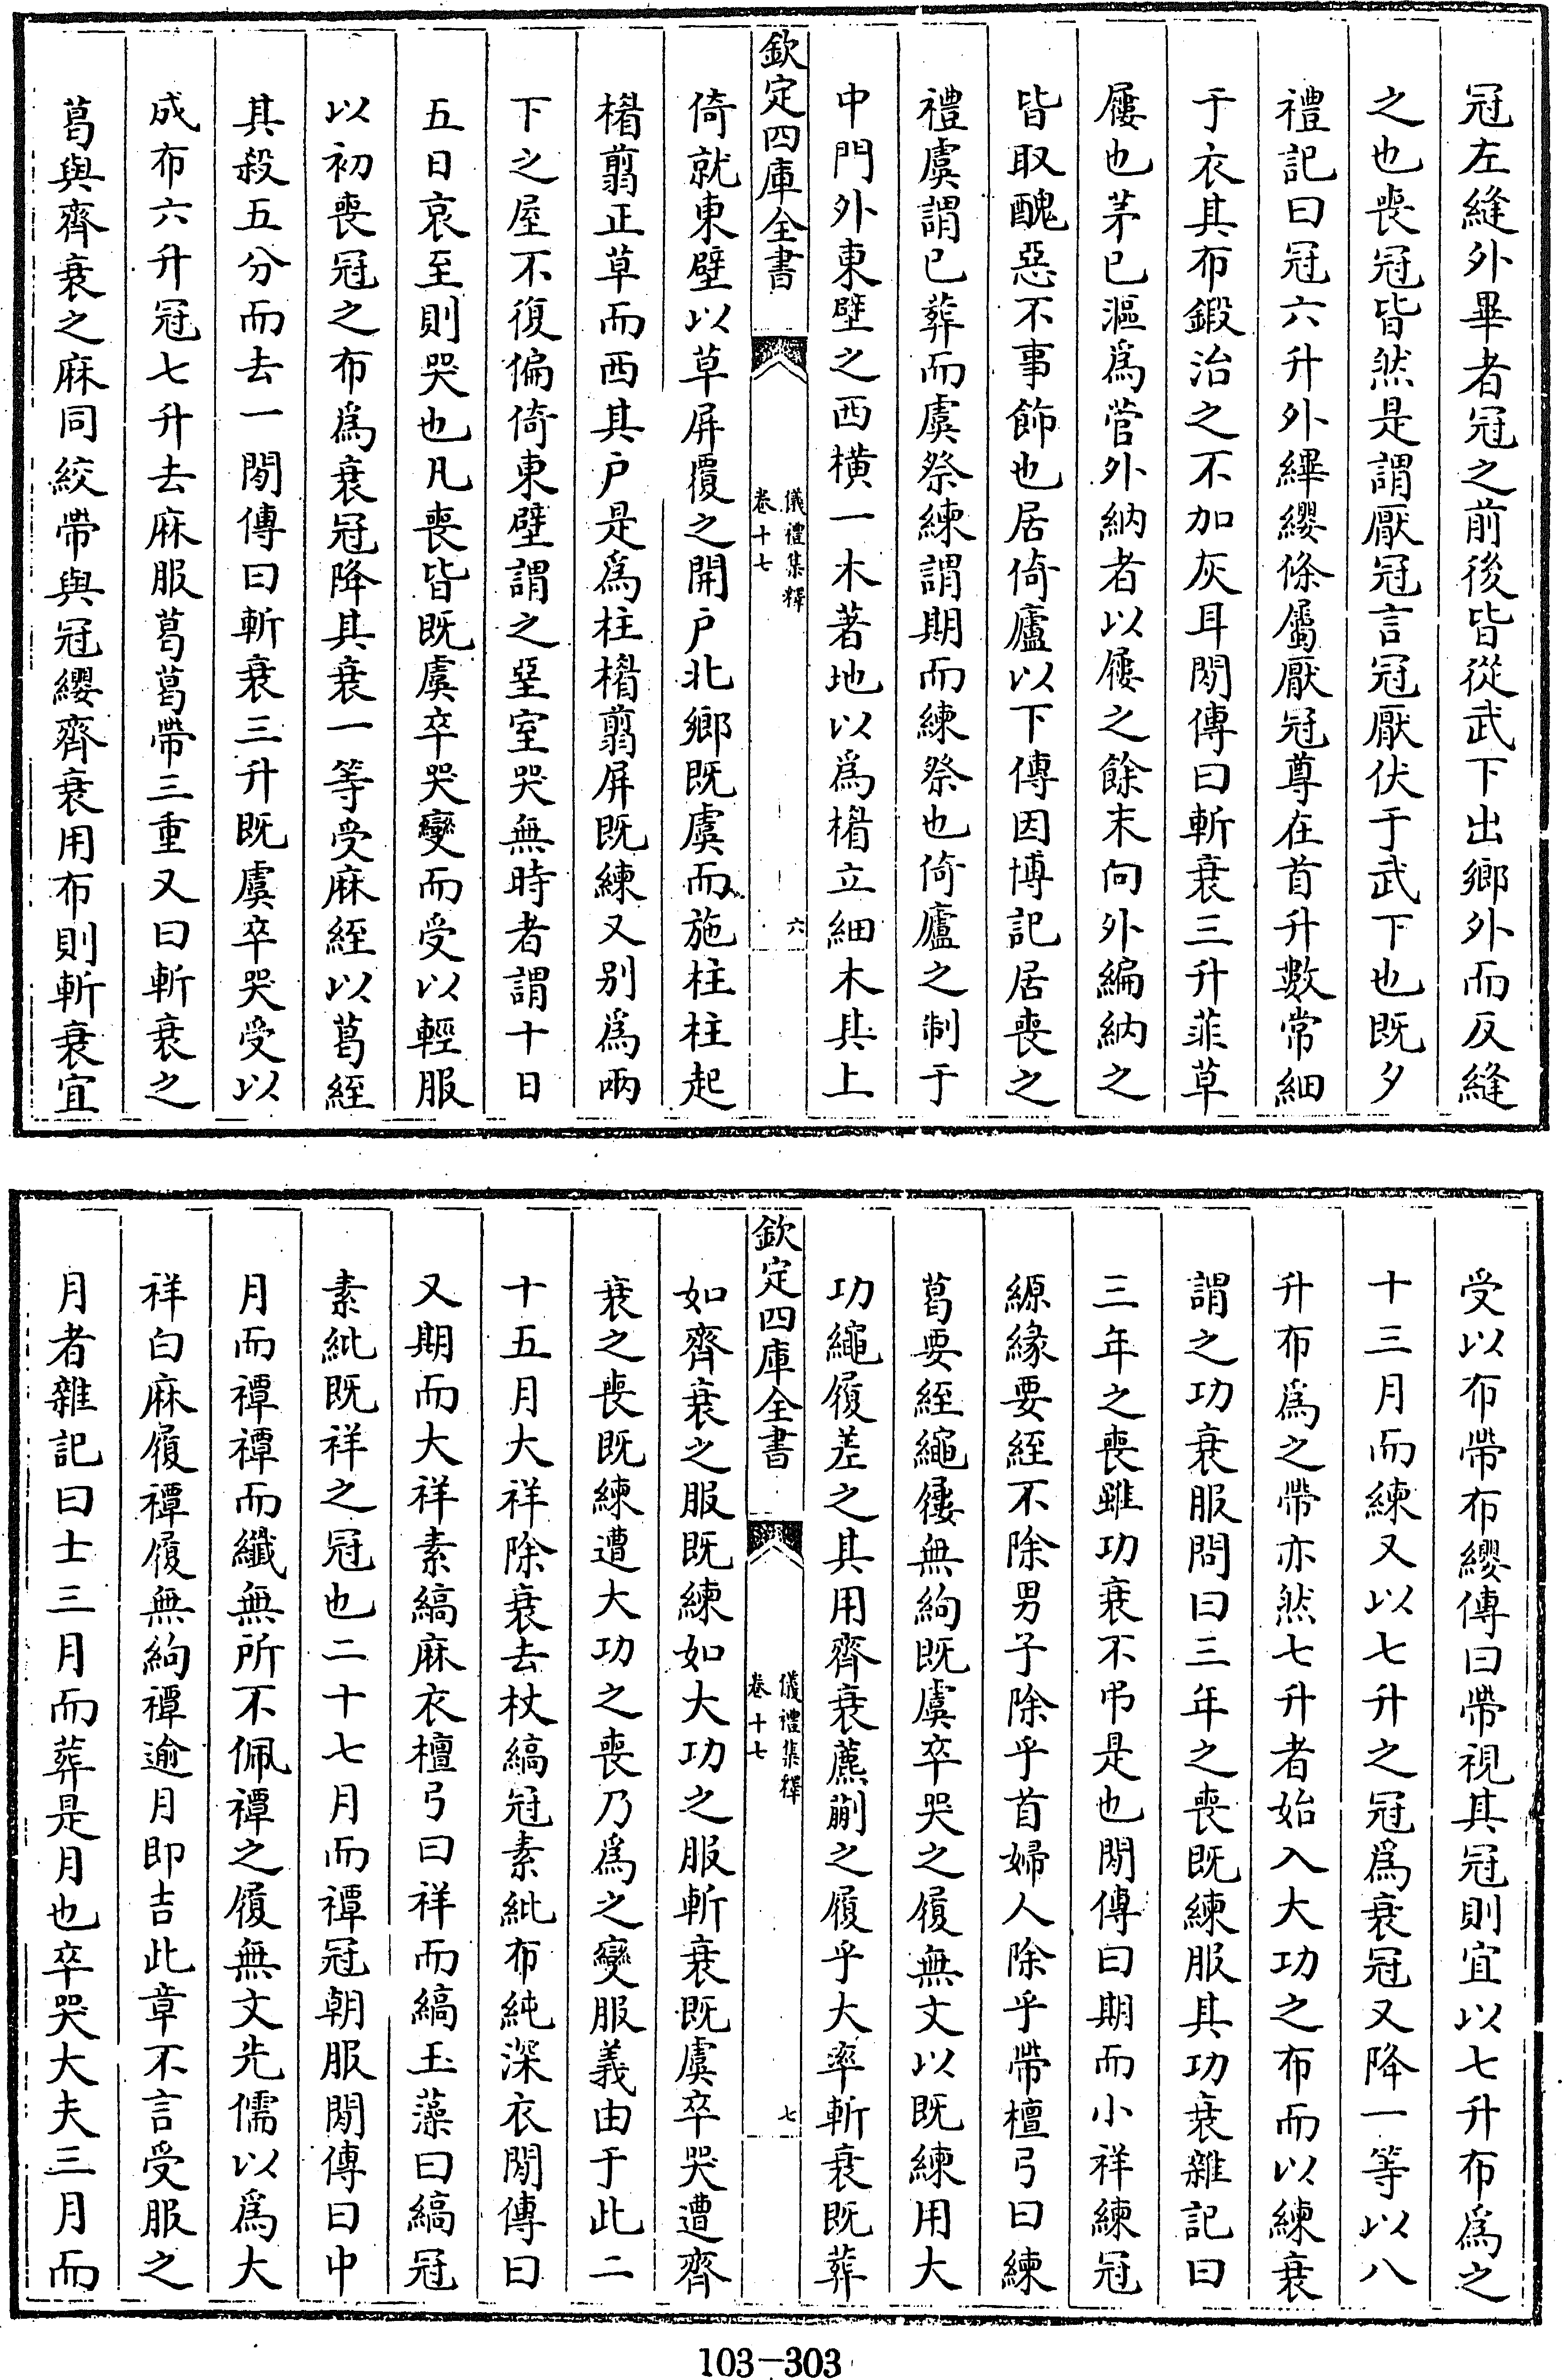 冠左縫外畢者冠之前後皆從武下出鄉外而反縫
之也喪冠皆然是謂厭冠言冠厭伏于武下也既夕
禮記曰冠六升外縪纓條屬厭冠尊在首升數常細
于衣其布鍛治之不加灰耳閒傳曰斬衰三升菲草
屨也茅已漚爲菅外納者以屨之餘末向外編納之
皆取醜惡不事飾也居倚廬以下傳因博記居喪之
禮虞謂已葬而虞祭練謂期而練祭也倚廬之制于
中門外東壁之西橫一木著地以爲楣立細木其上
欽定四庫全書
儀禮集釋
卷十七
六
倚就東壁以草屏覆之開户北鄉既虞而施柱柱起
楣翦正草而西其户是爲柱楣翦屏既練又别爲兩
下之屋不復偏倚東壁謂之堊室哭無時者謂十日
五日哀至則哭也凡喪皆既虞卒哭變而受以輕服
以初喪冠之布爲衰冠降其衰一等受麻絰以葛絰
其殺五分而去一閒傳曰斬衰三升既虞卒哭受以
成布六升冠七升去麻服葛葛帶三重又曰斬衰之
葛與齊衰之麻同絞帶與冠纓齊衰用布則斬衰宜
受以布帶布纓傳曰帶視其冠則宜以七升布爲之
十三月而練又以七升之冠爲衰冠又降一等以八
升布爲之帶亦然七升者始入大功之布而以練衰
謂之功衰服問曰三年之喪既練服其功衰雜記曰
三年之喪雖功衰不弔是也閒傳曰期而小祥練冠
縓緣要絰不除男子除乎首婦人除乎帶檀弓曰練
葛要絰繩屨無絇既虞卒哭之履無文以既練用大
功繩履差之其用齊衰薦蒯之履乎大率斬衰既葬
欽定四庫全書
儀禮集釋
卷十七
七
如齊衰之服既練如大功之服斬衰既虞卒哭遭齊
衰之喪既練遭大功之喪乃爲之變服義由于此二
十五月大祥除衰去杖縞冠素紕布純深衣閒傳曰
又期而大祥素縞麻衣檀弓曰祥而縞玉藻曰縞冠
素紕既祥之冠也二十七月而禫冠朝服閒傳曰中
月而禫禫而纖無所不佩禫之履無文先儒以爲大
祥白麻履禫履無絇禫逾月即吉此章不言受服之
月者雜記曰士三月而葬是月也卒哭大夫三月而
103-303